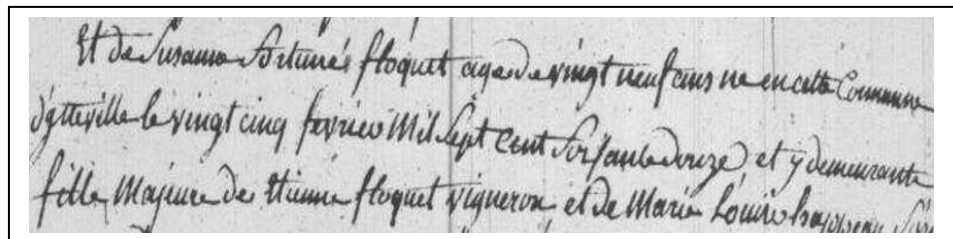 Et de Susanne fortunée floquet agee de vingt neuf ans ne en cette Commune
d'itteville le vingt cinq fevrier Mil Sept Cent Soixante douze, et y demeurante
fille Majeure de Etienne floquet vigneron, et de Marie Louise